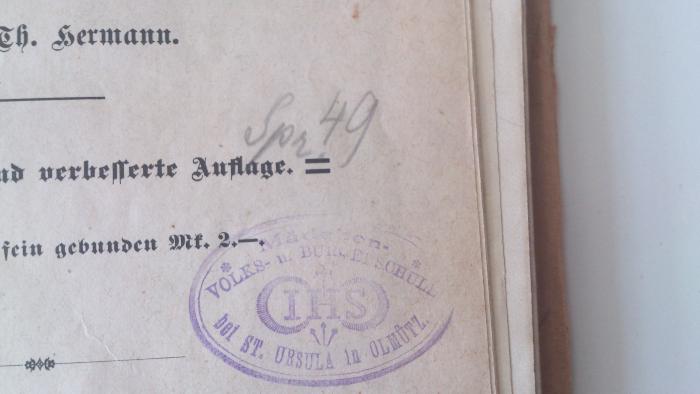 Th. Hermann.
Spr. 49
nd verbesserte Auflage. =
fein gebunden Mk. 2.—.
Mädchen-
* VOLKS- u. BÜRGERSCHULE *
IHS
bei ST. URSULA in OLMÜTZ.